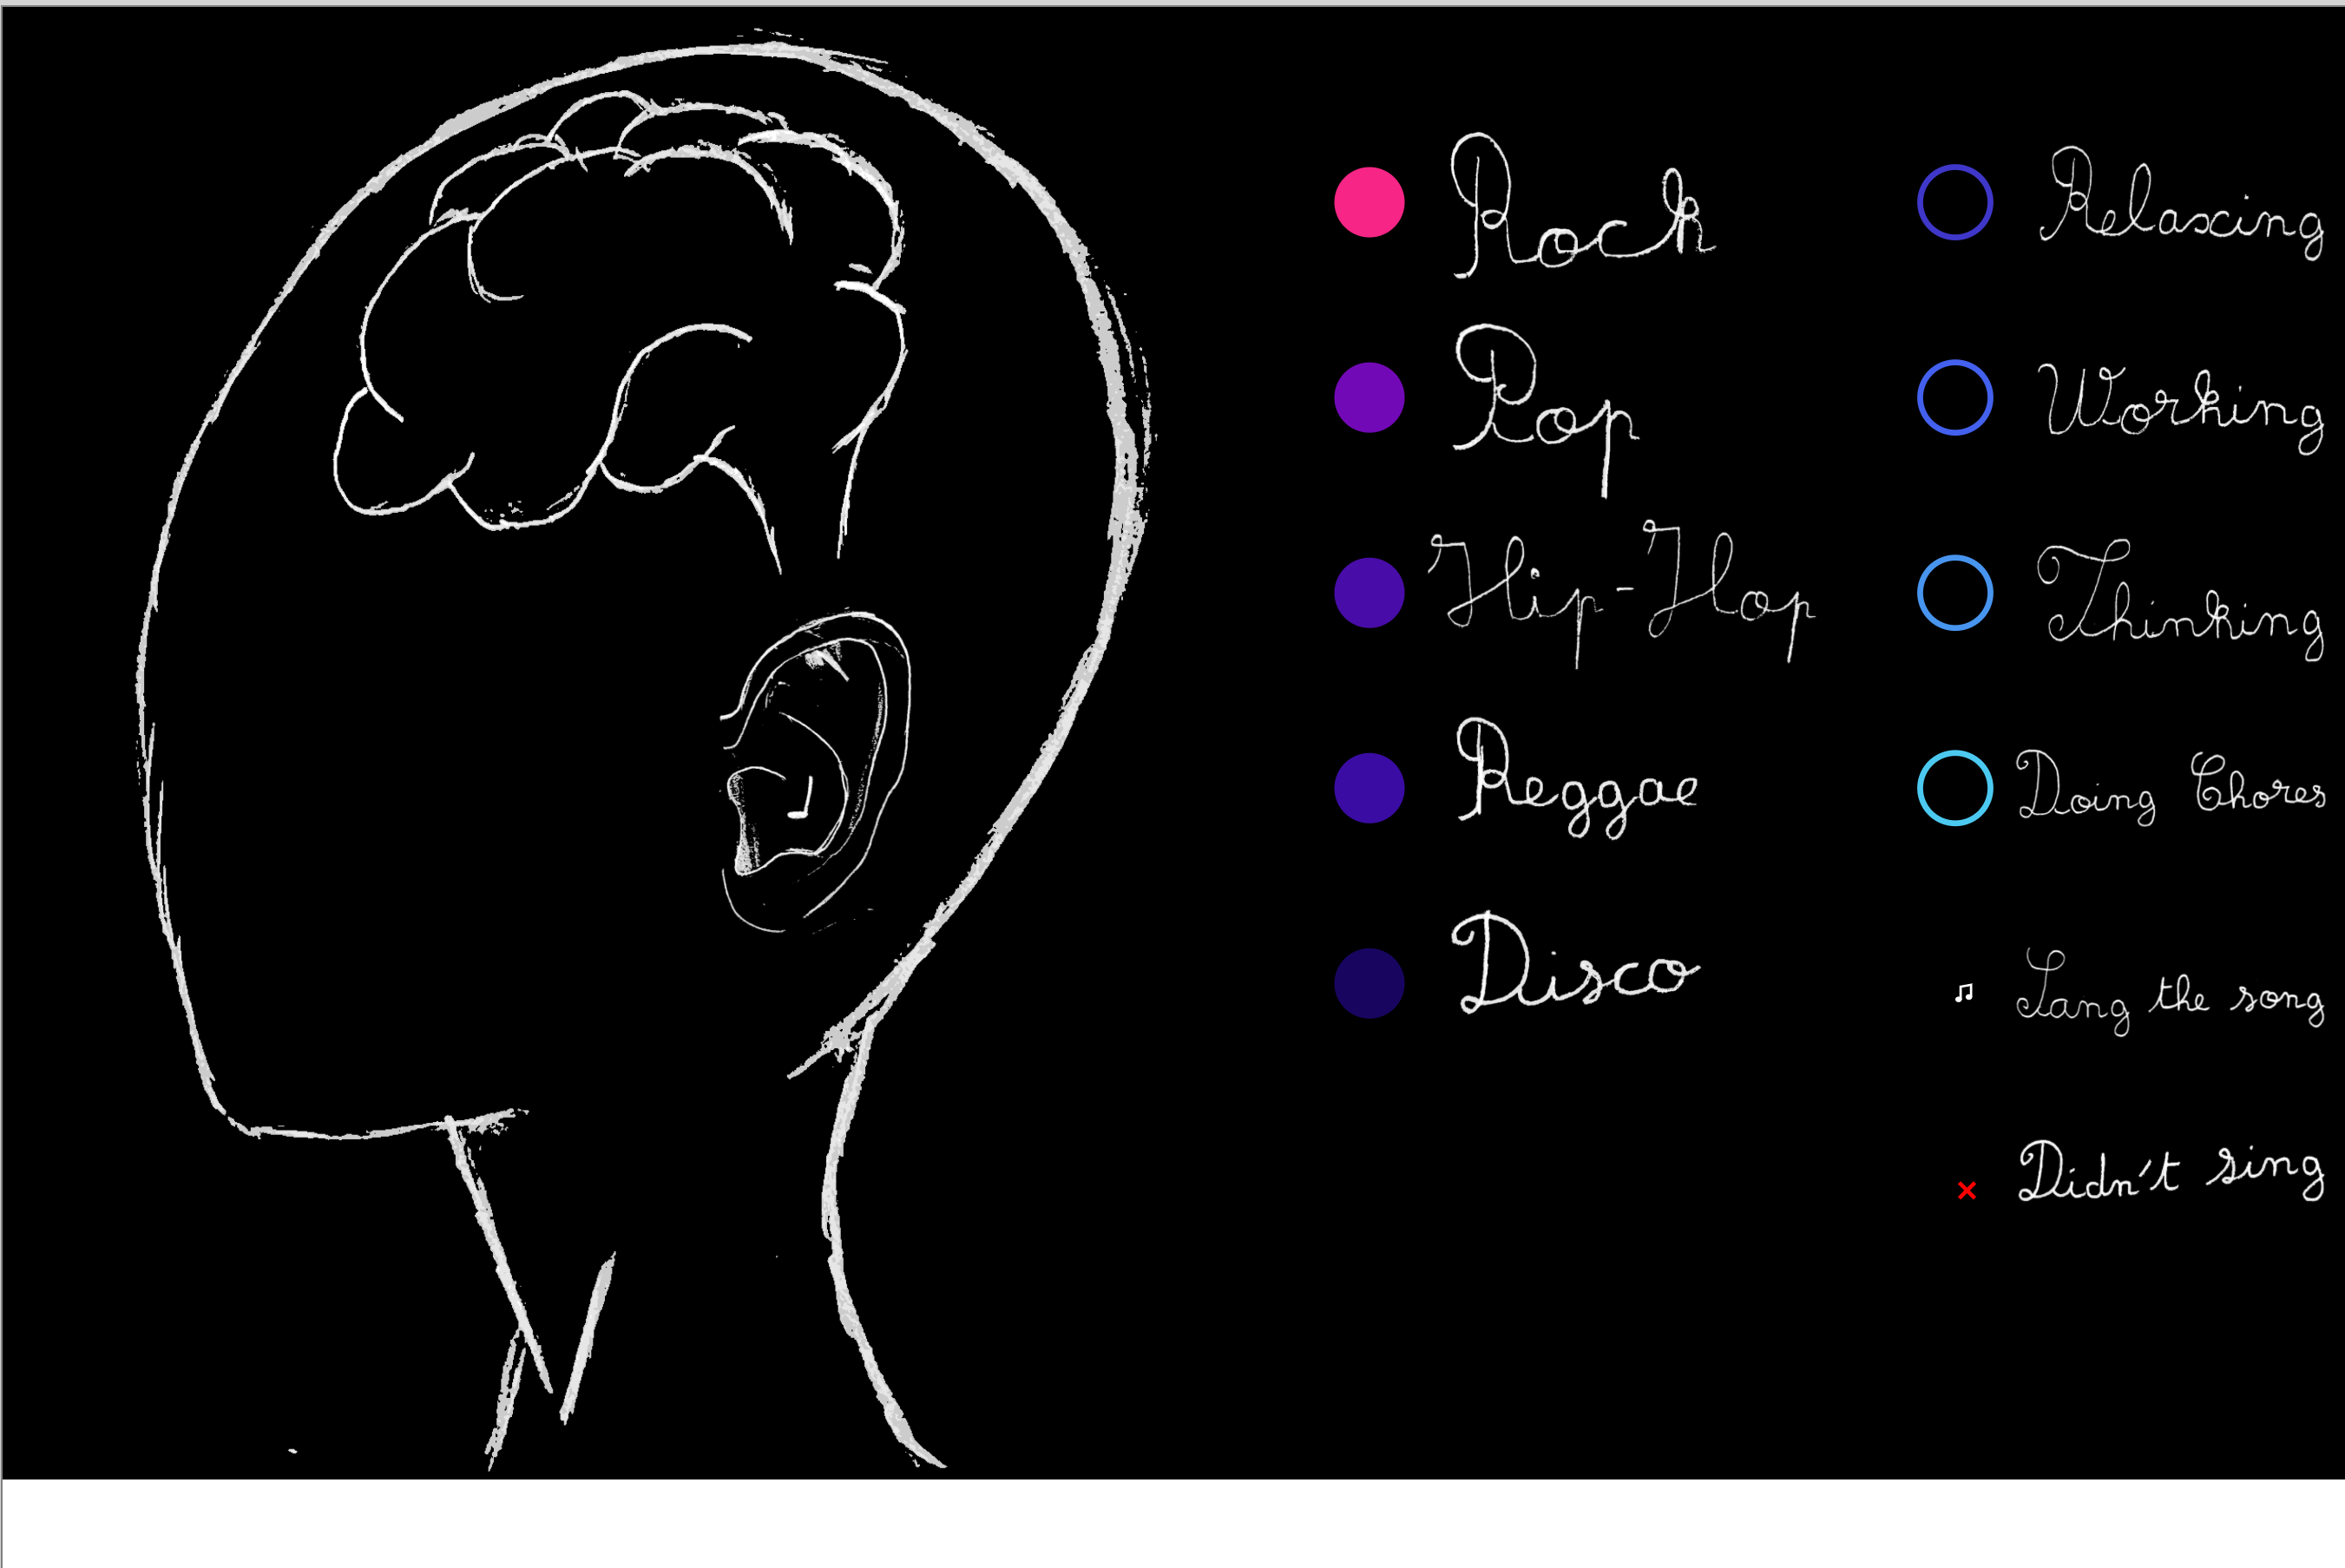 Rock
Pop
Hip-Hop
Reggae
Disco
Relaxing
Working
Thinking
Doing Chores
Sang the song
Didn't sing